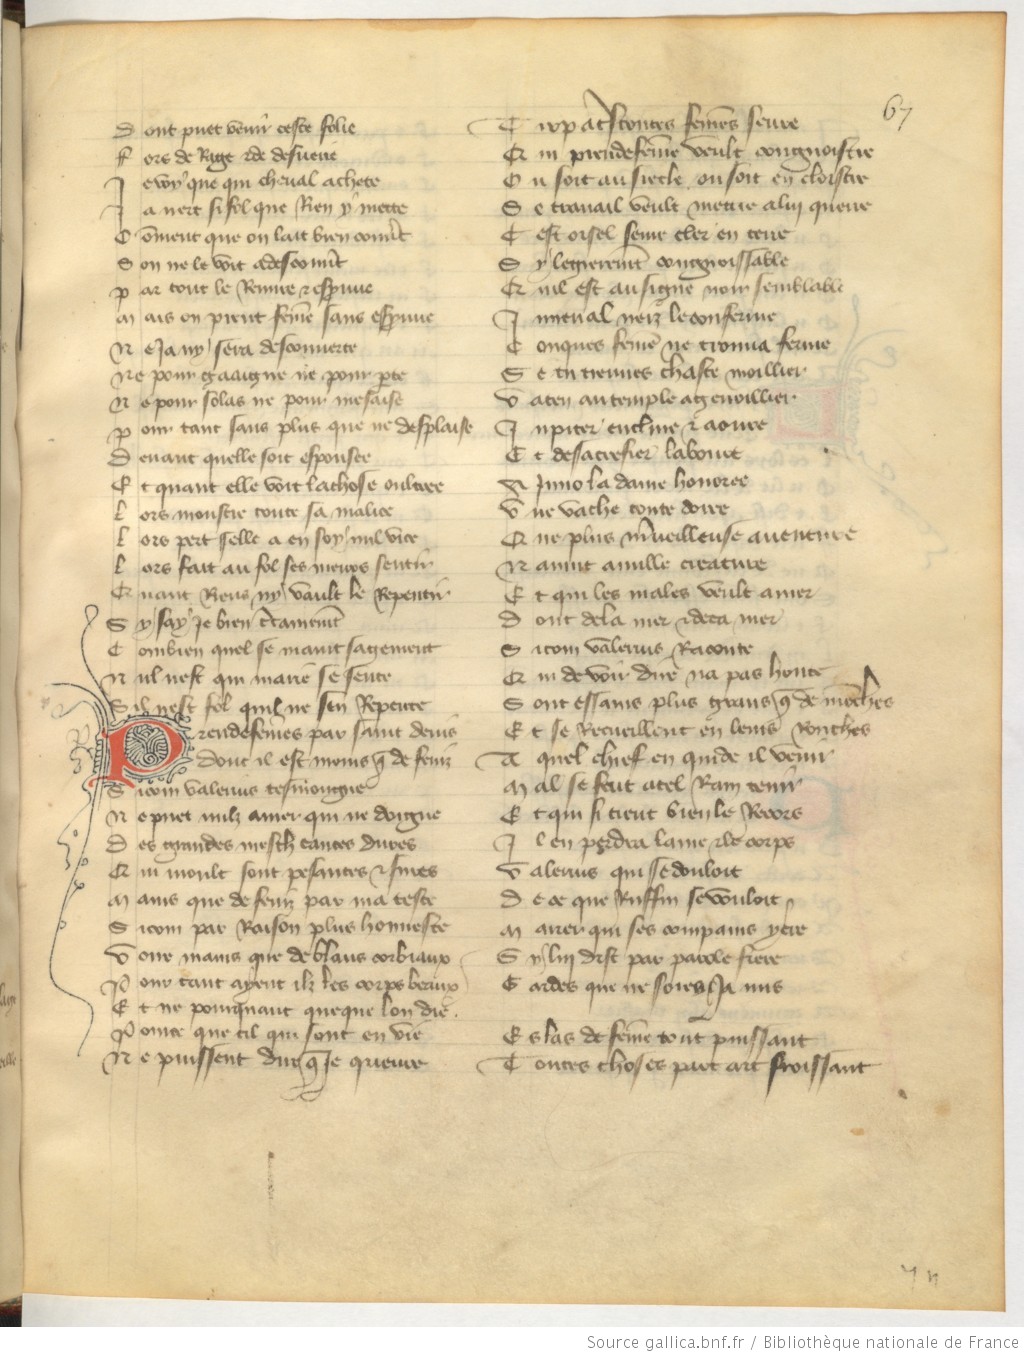 67
Dont puet venir ceste folie
Fors de Rage & de desverie
Je voy que qui cheval achete
Ja nert si fol que Rien y mette
Coment que on lait bien couvert
Son ne le voit a descouvert
Par tout le Remire & espreuve
Mais on prent feme sans espreuve
Ne Ja ny sera descouverte
Ne pour gaaigne ne pour perte
Ne pour solas ne pour mesaise
Pour tant sans plus que ne desplaise
Devant quelle soit espousee
Et quant elle voit la chose oultree
Lors moustre toute sa malice
Lors pert selle a en soy nul vice
Lors fait au fol ses meurs sentir
Quant Riens ny vault le Repentir
Sy say Je bien certainement
Combien quel se maint sagement
Nul nest qui marie se sente
Sil nest fol qui ne sen Repente
Prendefemes par saint denis
Dont il est moins que de fenix
Sicom valerius tesmoingne
Ne puet nulz amer qui ne doigne
Des grandes mesch eances dures
Qui moult sont pesantes & sures
Mains que de fenix par ma teste
Sicom par Raison plus honneste
Voire mains que de blans corbiaux
Pour tant ayent ilz les corps beaux
Et ne pourquant queque lon die
Pource que cil qui sont en vie
Ne puissent dire que Je queure
A toutes femes seure
Qui preudefeme veult congnoistre
Ou soit au siecle ou soit en cloistre
Se travail veult metre a luy querre
Cest oisel seme cler en terre
Sy legierement congnoissable
Quil est au signe noir semblable
Juvenal neiz le conferme
Conques feme ne trouva ferme
Se tu treuves chaste moillier
Va ten au temple agenoillier
Jupiter encline & aoure
Et de sacrefier laboure
A Juno la dame honoree
Une vache toute doree
Qune plus merveilleuse aventure
Navint a nulle creature
Et qui les males veult amer
Dont de la mer & deca mer
Sicom valerius Raconte
Qui de voir dire na pas honte
Sont essains plus grans que de mouches
Et se Recueillent en leurs Rouches
A quel chief en cuide il venir
Mal se fait a tel Ram tenir
Et qui si tient bien le Recors
Il en perdra lame & le corps
Valerius qui se douloit
De ce que Ruffin se vouloit
Marier qui ses compains yere
Sy luy dist par parole fiere
Gardes que ne soies Ja mis
Es las de feme tout puissant
Toutes choses par art froissant
Source gallica.bnf.fr / Bibliothèque nationale de France